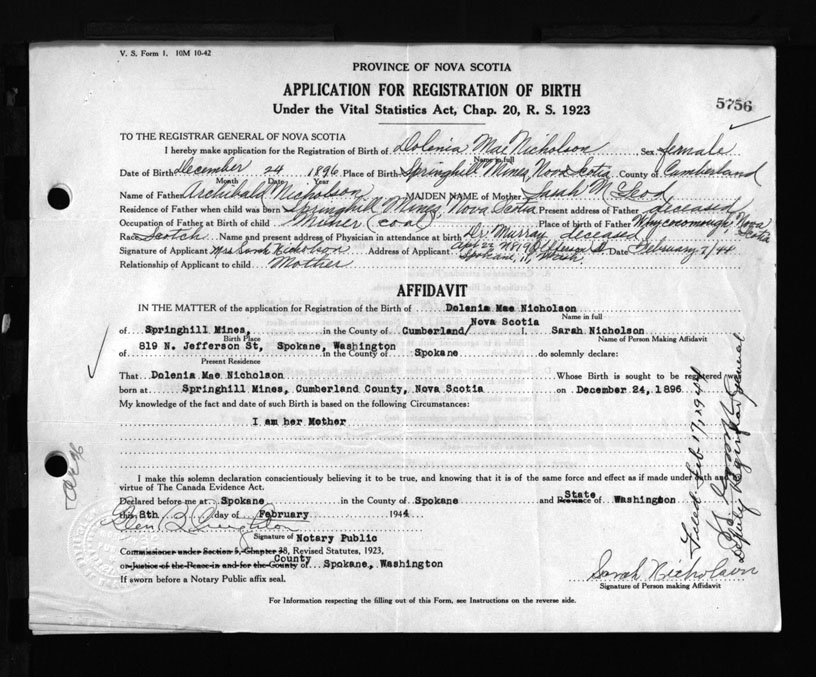 V. S. Form 1. 10M 10-42
PROVINCE OF NOVA SCOTIA
APPLICATION FOR REGISTRATION OF BIRTH
5756
Under the Vital Statistics Act, Chap. 20, R. S. 1923
TO THE REGISTRAR GENERAL OF NOVA SCOTIA
I hereby make application for the Registration of Birth of Dolenia Mae Nicholson Sex female
Name in full
Date of Birth December 24 1896 Place of Birth Springhill Mines, Nova Scotia County of Cumberland
Month Date Year
Name of Father Archibald Nicholson MAIDEN NAME of Mother Sarah McLeod
Residence of Father when child was born Springhill Mines, Nova Scotia Present address of Father deceased
Occupation of Father at Birth of child Miner (coal) Place of birth of Father Whycocomough, Nova Scotia
Race Scotch Name and present address of Physician in attendance at birth Dr. Murray deceased
Signature of Applicant Mrs Sarah Nicholson Address of Applicant N 819 Jefferson St. Spokane, 11, Wash. Date February 7/44
Relationship of Applicant to child Mother
AFFIDAVIT
IN THE MATTER of the application for Registration of the Birth of Dolenia Mae Nicholson
Name in full
of Springhill Mines, in the County of Cumberland/ Nova Scotia I, Sarah Nicholson
Birth Place Name of Person Making Affidavit
of 819 N. Jefferson St, Spokane, Washington in the County of Spokane do solemnly declare:
Present Residence
That Dolenia Mae Nicholson Whose Birth is sought to be registered was
born at Springhill Mines, Cumberland County, Nova Scotia on December 24, 1896
My knowledge of the fact and date of such Birth is based on the following Circumstances:
I am her Mother
I make this solemn declaration conscientiously believing it to be true, and knowing that it is of the same force and effect as if made under oath and
virtue of The Canada Evidence Act.
Declared before me at Spokane in the County of Spokane and Province State of Washington
this 8th day of February 1944
Signature of Notary Public
Commissioner under Section 5, Chapter 38, Revised Statutes, 1923,
or Justice of the Peace in and for the County of County Spokane, Washington
If sworn before a Notary Public affix seal.
Sarah Nicholson
Signature of Person making Affidavit
For Information respecting the filling out of this Form, see Instructions on the reverse side.
Filed Feb 17/1944
Deputy Registrar General